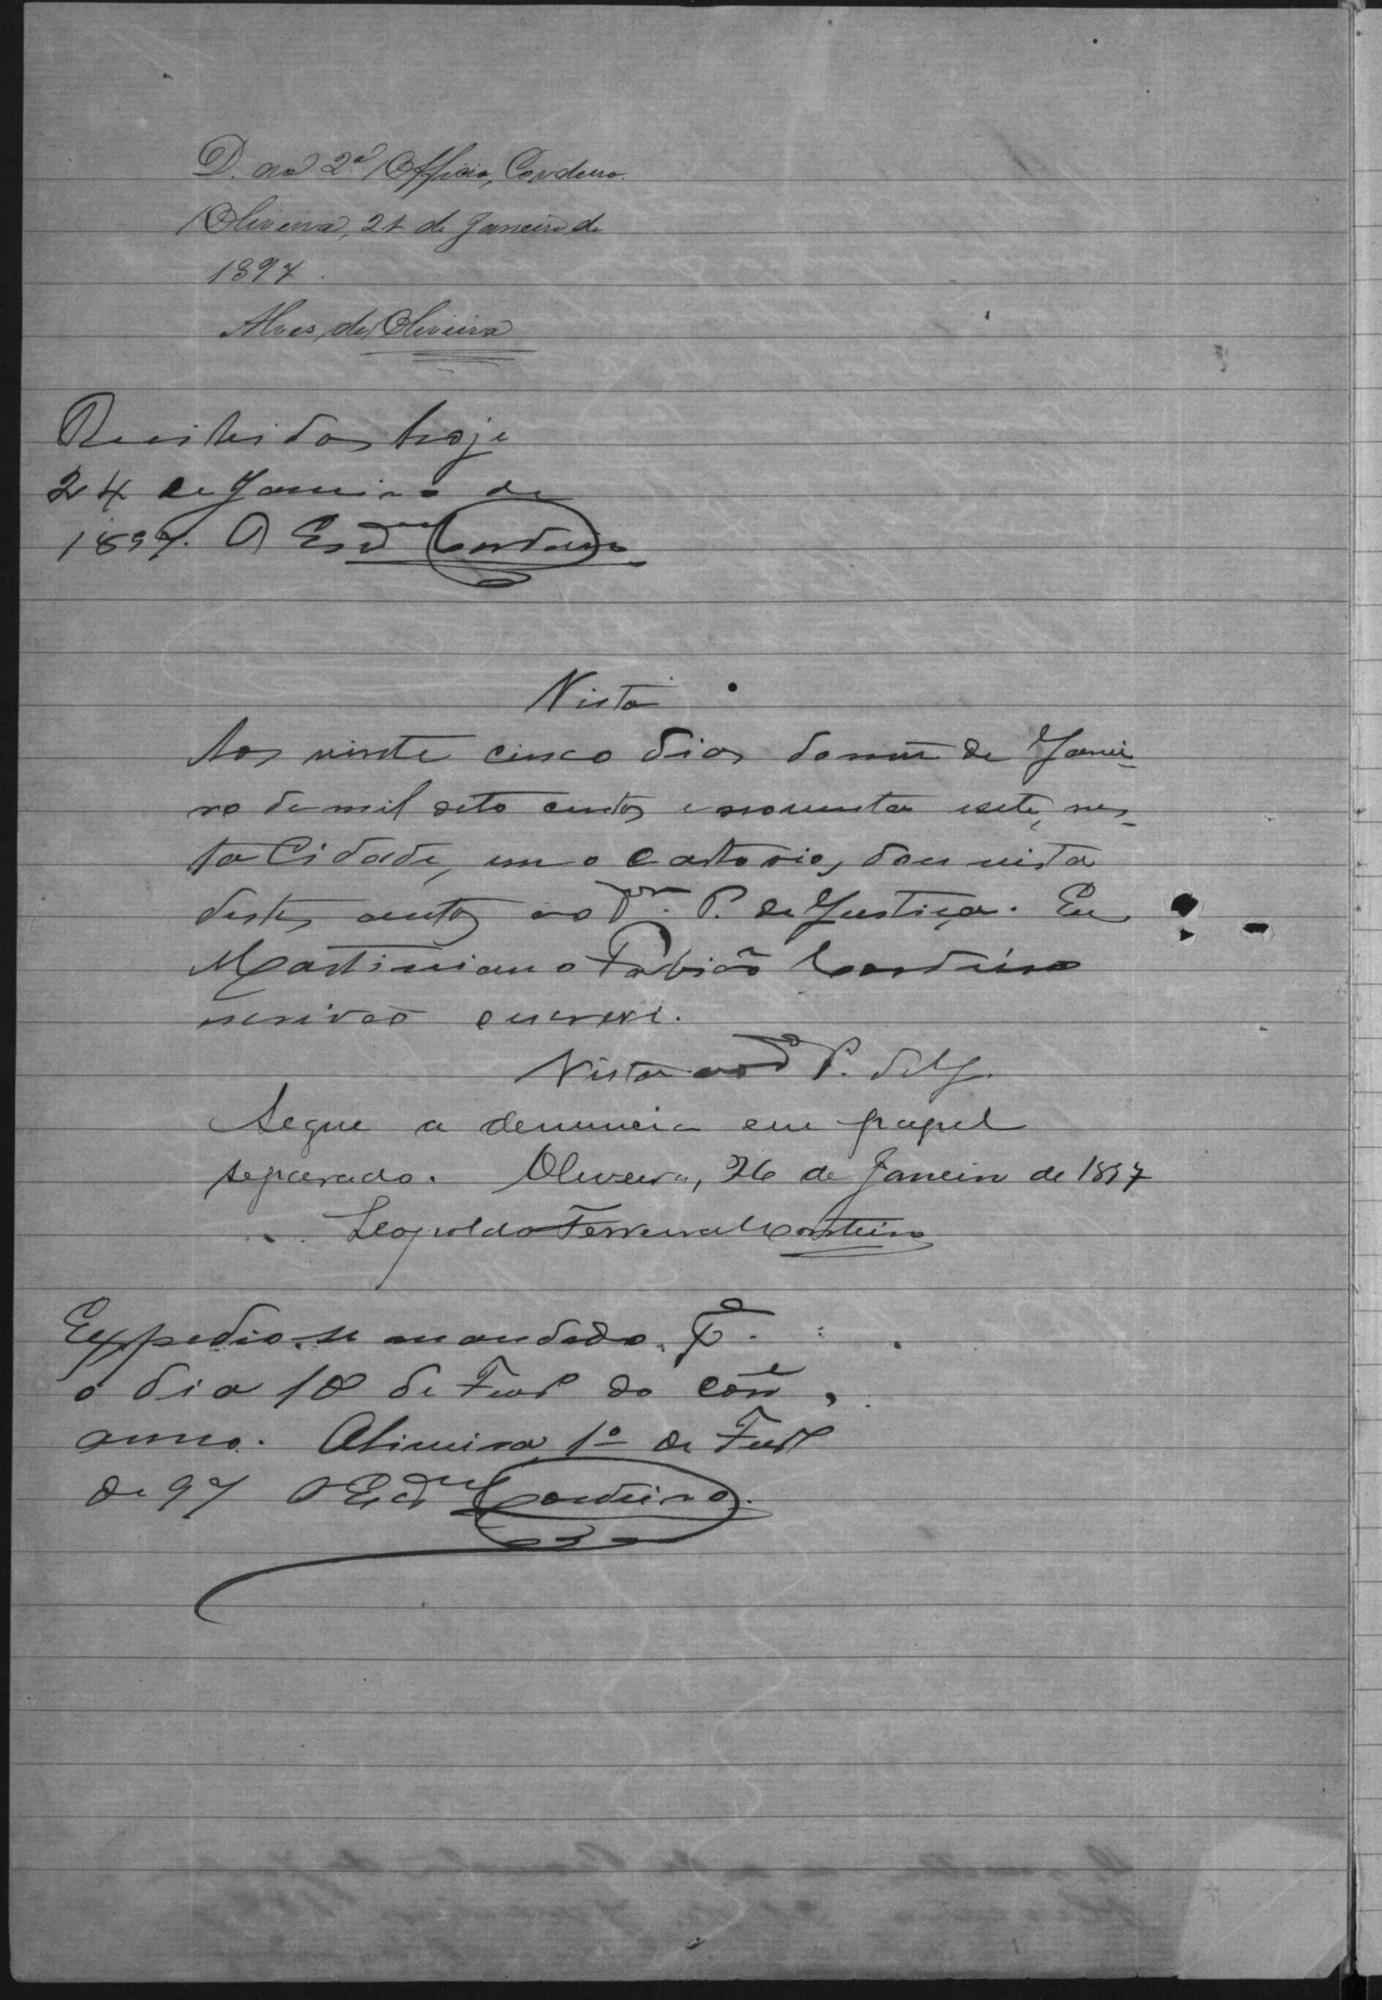 D. ao 2º Officio, Cordeiro.
Oliveira, 21 de Janeiro de
1897.
Alves de Oliveira
Recebidos hoje
24 de Janeiro de
1897. O Esc.ᵐ Cordeiro
Vista
Aos vinte cinco dias do mez de Janei-
ro de mil oito centos e noventa e sete, nes-
ta Cidade, em o Cartorio, dou vista
destes autos ao Dr. P. de Justiça. Eu
Martiniano Fabião Cordeiro
escrivão escrevi.
Vista ao Dr P. de J.
Segue a denuncia em papel
separado. Oliveira, 26 de Janeiro de 1897
Leopoldo Ferreira Monteiro
Expedio-se mandado. Pª.
o dia 10 de Fevº do corrᵉ
anno. Oliveira 1º de Fevº
de 97 O Esc.ᵐ Cordeiro.